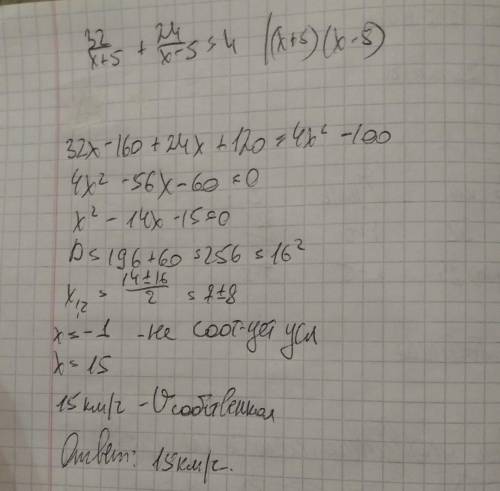 32/x+5 + 24/x-5 = 4 |(x+5)(x-5)
32x-160+24x+120=4x²-100
4x²-56x-60=0
x²-14x-15=0
D=196+60=256=16²
x₁,₂=14±16/2=7±8
x=-1 -не соот-ует усл
x=15
15км/г - Vсобственная
Ответ: 15км/г.